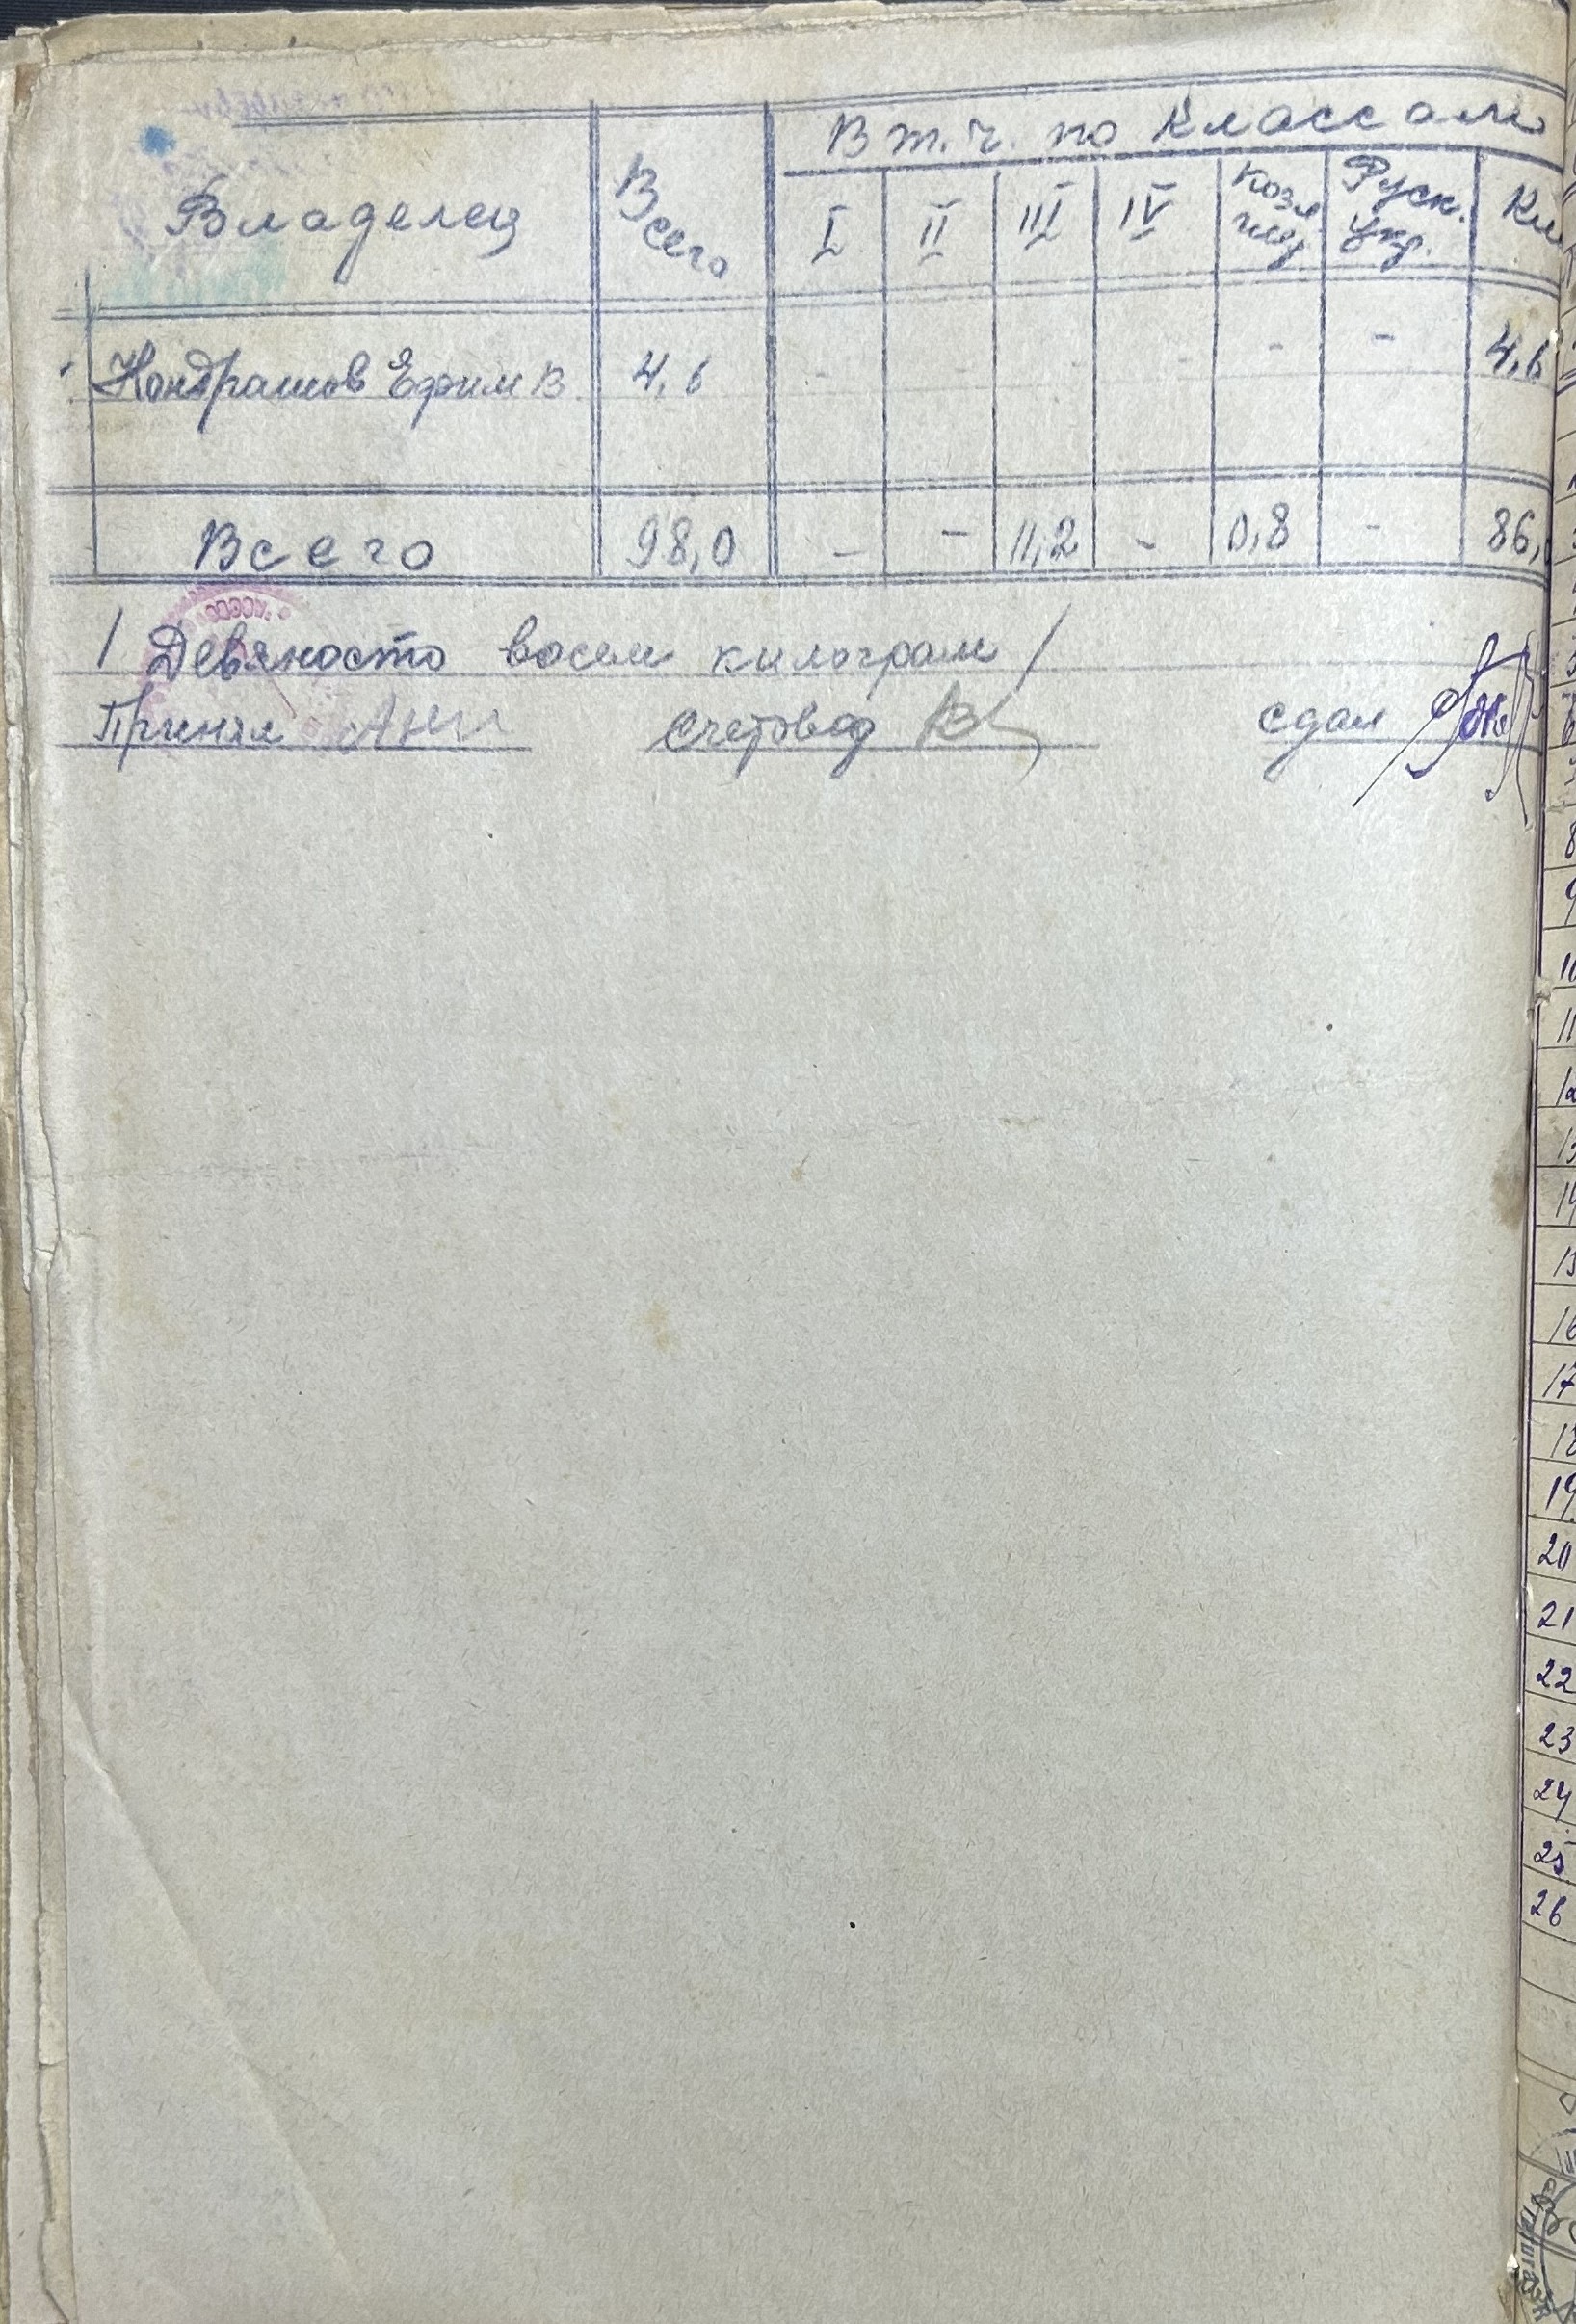 Владелец Всего В т.ч. по классам
I II III IV козл. Руск. Кл
Кондрашов Ефим В. 4,6 - - - - - - 4,6
Всего 98,0 - - 11,2 - 0,8 - 86,
/ Девяносто восем килограм /
Принял счетовод сдал
8
9
10
11
12
13
14
15
16
17
18
19
20
21
22
23
24
25
26